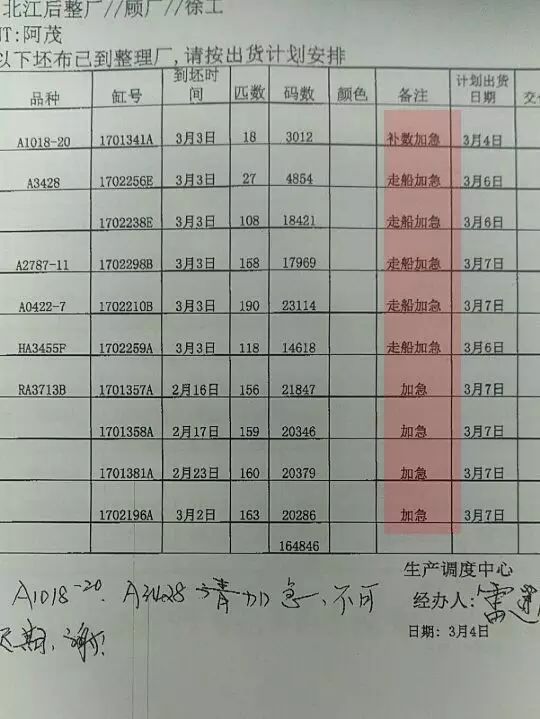 北江后整厂//顾厂//徐工
NT:阿茂
以下坯布已到整理厂,请按出货计划安排
品种 缸号 到坯时间 匹数 码数 颜色 备注 计划出货日期 交
A1018-20 1701341A 3月3日 18 3012 补数加急 3月4日
A3428 1702256E 3月3日 27 4854 走船加急 3月6日
1702238E 3月3日 108 18421 走船加急 3月6日
A2787-11 1702298B 3月3日 158 17969 走船加急 3月7日
A0422-7 1702210B 3月3日 190 23114 走船加急 3月7日
HA3455F 1702259A 3月3日 118 14618 走船加急 3月6日
RA3713B 1701357A 2月16日 156 21847 加急 3月7日
1701358A 2月17日 159 20346 加急 3月7日
1701381A 2月23日 160 20379 加急 3月7日
1702196A 3月2日 163 20286 加急 3月7日
164846
生产调度中心
A1018-20. A3428 请加急、不可
经办人:雷
延期、谢谢!
日期: 3月4日